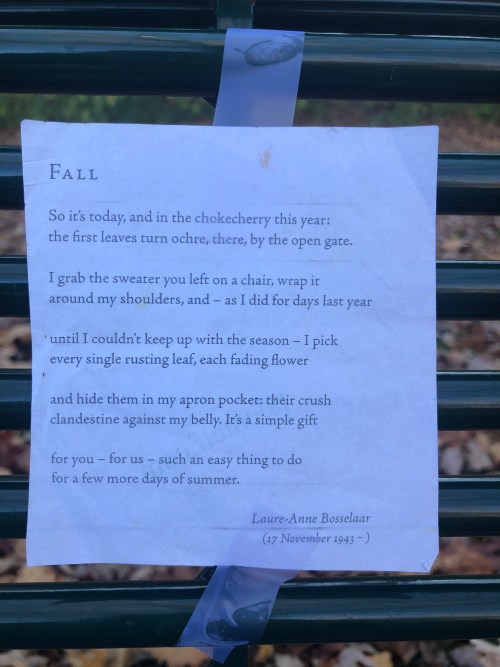 FALL
So it's today, and in the chokecherry this year:
the first leaves turn ochre, there, by the open gate.
I grab the sweater you left on a chair, wrap it
around my shoulders, and – as I did for days last year
until I couldn't keep up with the season – I pick
every single rusting leaf, each fading flower
and hide them in my apron pocket: their crush
clandestine against my belly. It's a simple gift
for you – for us – such an easy thing to do
for a few more days of summer.
Laure-Anne Bosselaar
(17 November 1943 – )